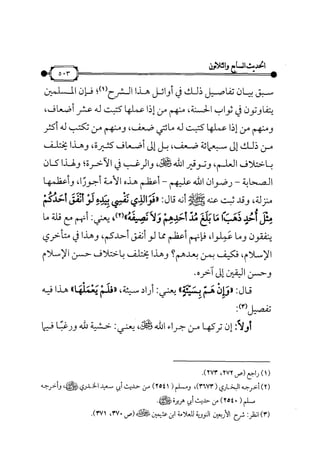 الحديث السابع والثلاثون
٥٠٣
سبق بيان تفاصيل ذلك في أوائل هذا الشرح(١)؛ فإن المسلمين
يتفاوتون في ثواب الحسنة، منهم من إذا عملها كتبت له عشر أضعاف،
ومنهم من إذا عملها كتبت له مائتي ضعف، ومنهم من تكتب له أكثر
من ذلك إلى سبعمائة ضعف، بل إلى أضعاف كثيرة، وهذا يختلف
باختلاف العلم، وتوقير الله ﷻ، والرغب في الآخرة؛ ولهذا كان
الصحابة - رضوان الله عليهم - أعظم هذه الأمة أجورًا، وأعظمها
منزلة، وقد ثبت عنه ﷺ أنه قال: «فَوَالَّذِي نَفْسِي بِيَدِهِ لَوْ أَنْفَقَ أَحَدُكُمْ
مِثْلَ أُحُدٍ ذَهَبًا مَا بَلَغَ مُدَّ أَحَدِهِمْ وَلَا نَصِيفَهُ»(٢)، يعني: أنهم مع قلة ما
ينفقون وما عملوا، فإنهم أعظم مما لو أنفق أحدكم، وهذا في متأخري
الإسلام، فكيف بمن بعدهم؟ وهذا يختلف باختلاف حسن الإسلام
وحسن اليقين إلى آخره.
قال: «وَإِنْ هَمَّ بِسَيِّئَةٍ» يعني: أراد سيئة، «فَلَمْ يَعْمَلْهَا» هذا فيه
تفصيل(٣):
أولًا: إن تركها من جراء الله ﷻ، يعني: خشية لله ورغبًا فيما
(١) راجع (ص ٢٧٢، ٢٧٣).
(٢) أخرجه البخاري (٣١٧٣)، ومسلم (٢٥٤١) من حديث أبي سعيد الخدري ﷺ، وأخرجه
مسلم (٢٥٤٠) من حديث أبي هريرة
(٣) انظر: شرح الأربعين النووية للعلامة ابن عثيمين (ص ٣٧٠، ٣٧١).